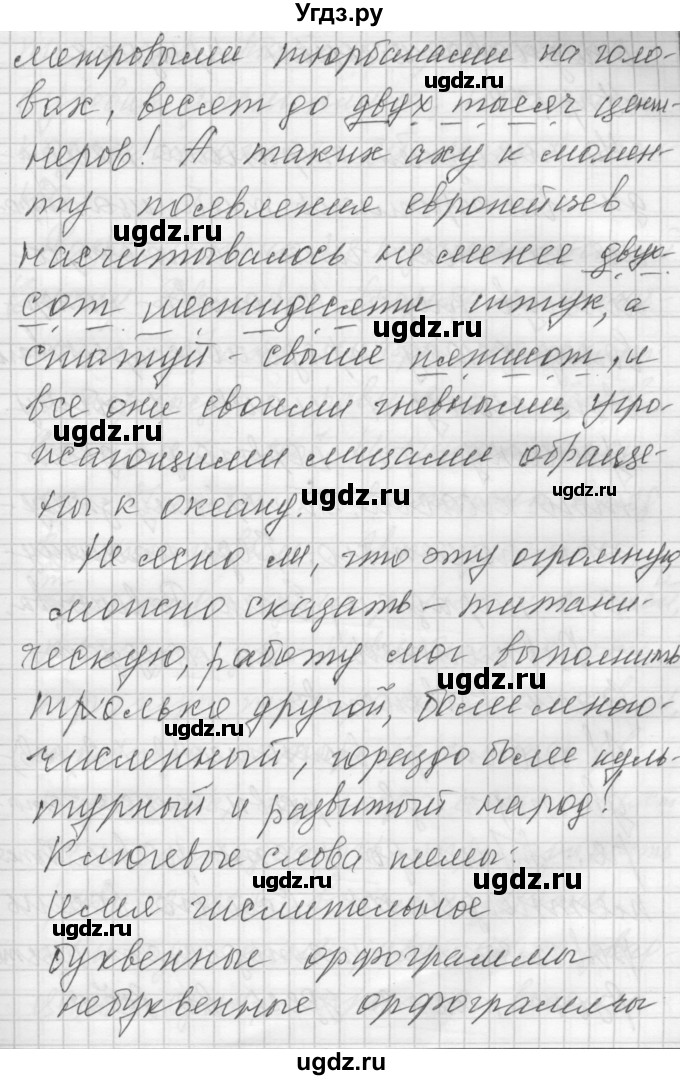 Угдз.ру
метровыми тюрбанами на голо-
ugdz.ru
вах, весят до двух тысяч цент-
неров! А таких аху к момен-
ту появления европейцев
ugdz.ru
насчитывалось не менее двух-
сот шестидесяти штук, а
ugdz.ru
статуй - свыше пятисот, и
все они своими гневными, угро-
ugdz.ru
жающими лицами обраще-
ugdz.ru ugdz.ru
ны к океану.
Не ясно ли, что эту огромную
можно сказать - титани-
ческую, работу мог выполнить
ugdz.ru
только другой, более много-
ugdz.ru
численный, гораздо более куль-
турный и развитый народ!
Ключевые слова темы:
ugdz.ru ugdz.ru
имя числительное
ugdz.ru
буквенные орфограммы
небуквенные орфограммы
ugdz.ru